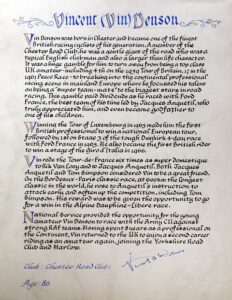 Vincent 'Vin' Denson.
Vin Denson was born in Chester and became one of the finest
British racing cyclists of his generation. A member of the
Chester Road Club, he was a gently giant of the road who was a
typical English clubman and also a larger than life character.
It was a huge gamble for him to turn away from being a top class
UK amateur including 4th on the 1959 Tour of Britain, 17 in the
1959 Peace Race - to breaking into the continental professional
racing scene in mainland Europe where he focused his talent
on being a 'super team-mate' to the biggest stars in road
racing. This gamble paid dividends as the race with Ford
France, the best team of this time led by Jacques Anquetil, who
truly appreciated him, and even became godfather to his
children.
Winning the Tour of Luxembourg in 1965 made him the first
British professional to win a national European tour,
followed by 1st on Stage 3 of the tough Dunkirk 4-day race
with Ford France in 1965. He also became the first British rider
to win a stage of the Giro d'Italia in 1966.
Vin rode the Tour-de-France six times as super domestique
for Rik Van Looy and Jacques Anquetil. Both Jacques
Anquetil and Tom Simpson considered Vin to be a great friend.
On the Bordeaux-Paris classic race, at 600km the longest
classic in the world, he rose to Anquetil's instruction to
attack early and soften up the competition, including Tom
Simpson. His reward was to be given the opportunity to go
for a win in the Alpine Dauphine-Libere race.
National Service provided the opportunity for the young
amateur Vin Denson to race with the Army CC against
strong RAF teams. Having spent 8 years as a professional on
the Continent, Vin returned to the UK to enjoy a second career
riding as an amateur again, joining the Yorkshire Road
Club and Harlow.
Club: Chester Road Club.
Age: 86